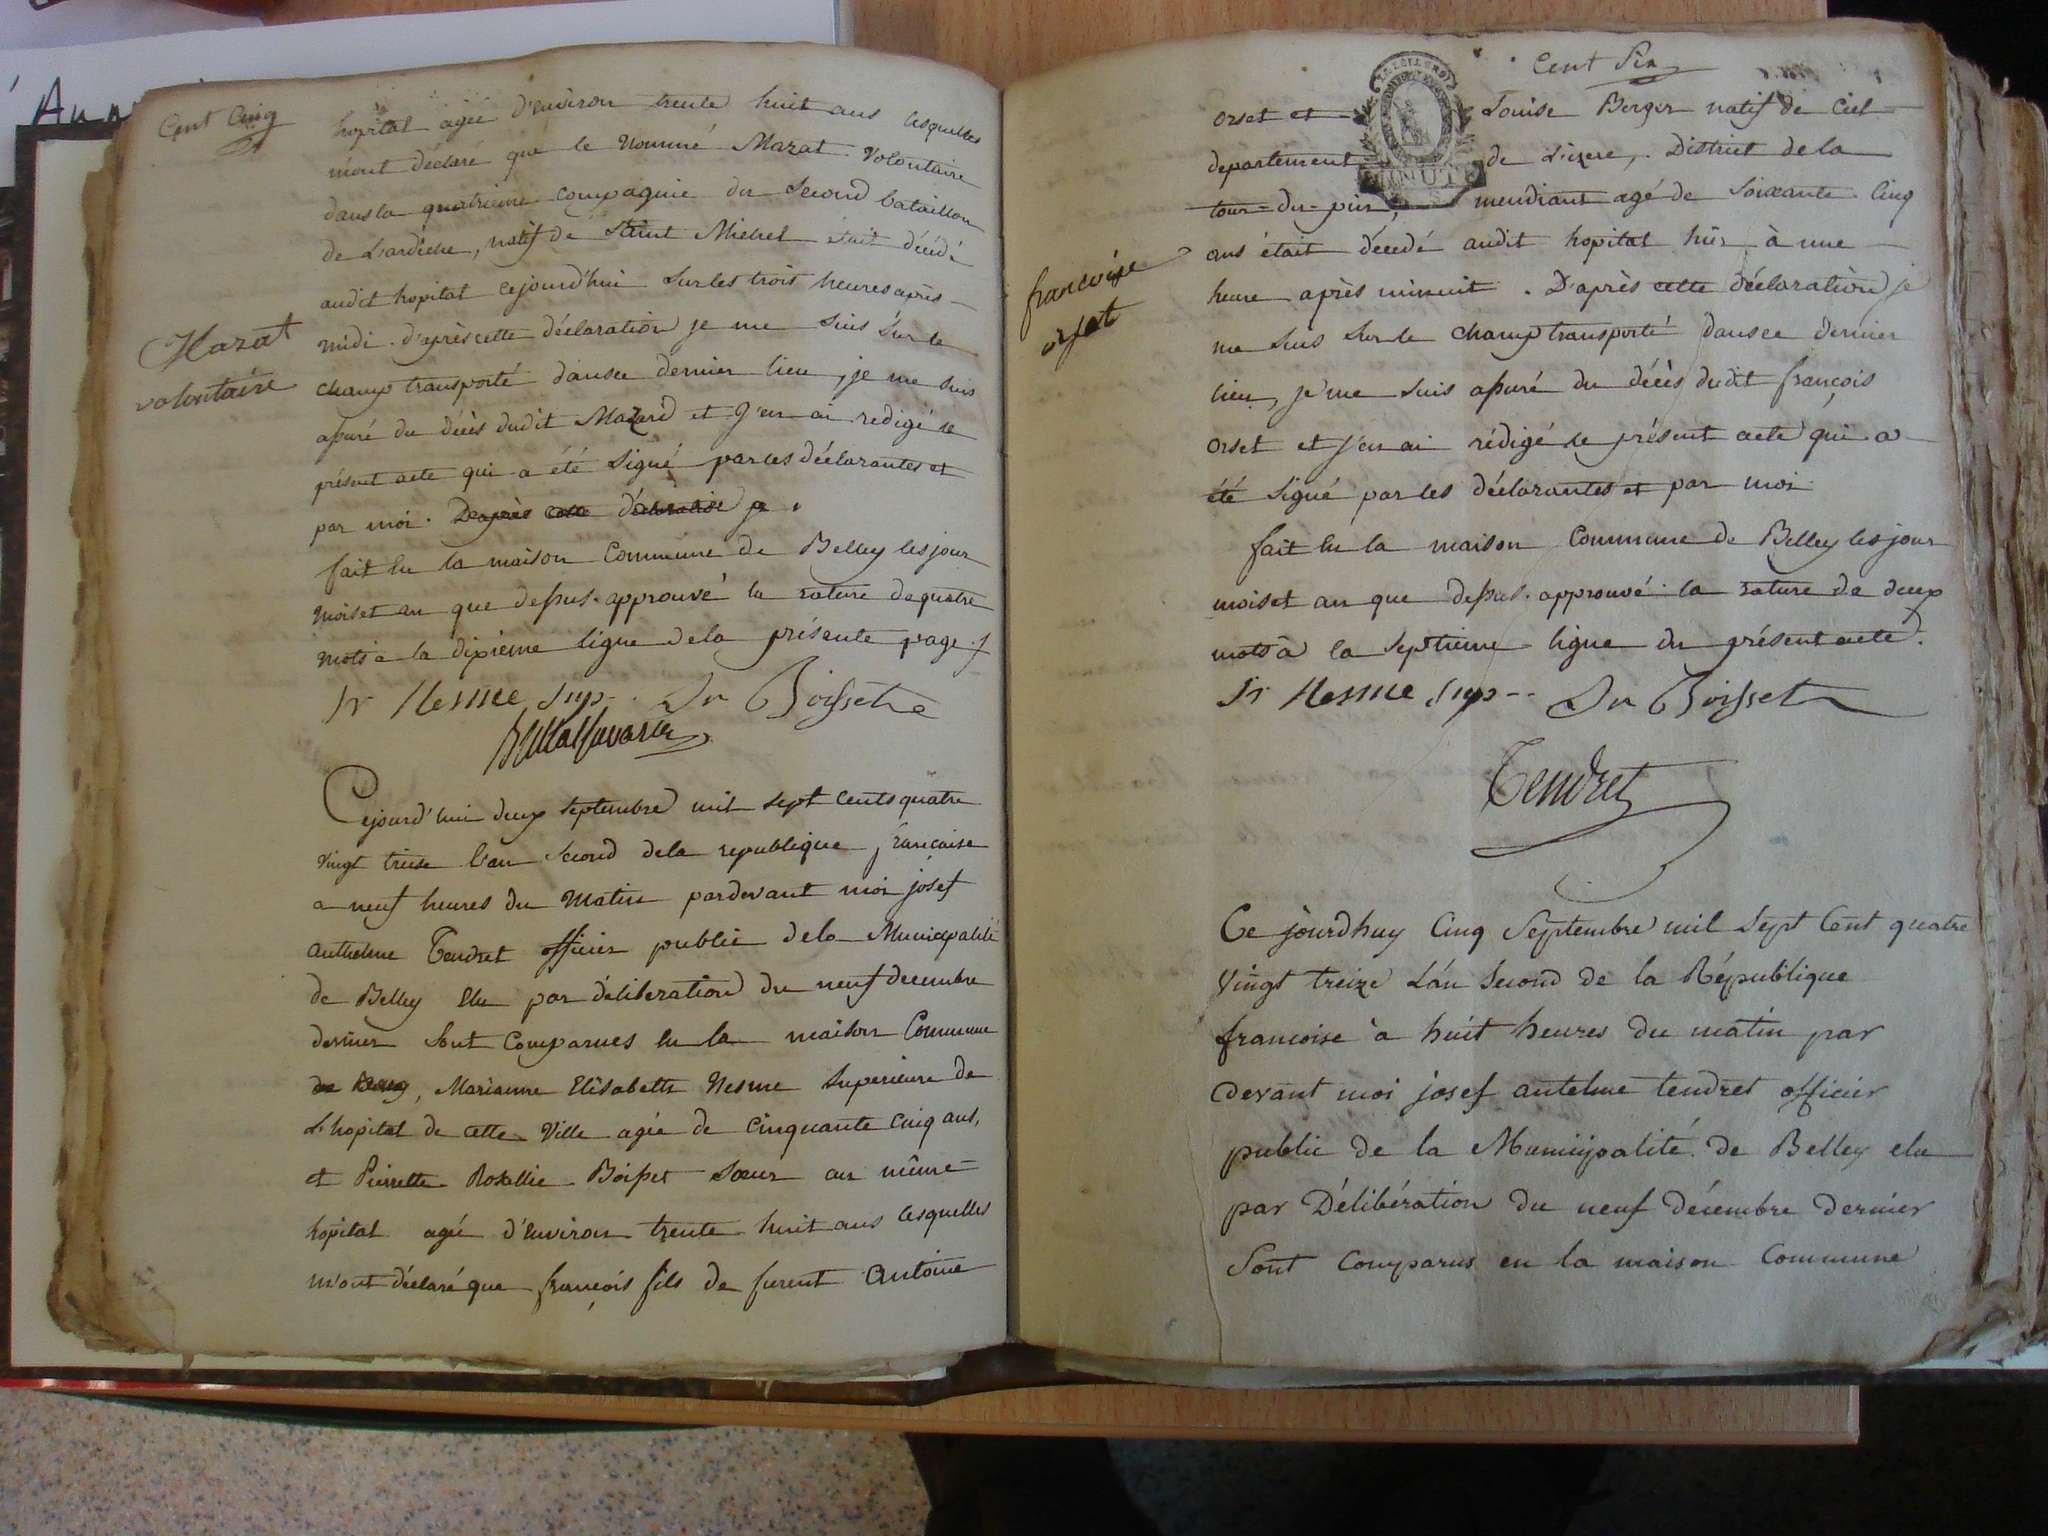 Ann
Cent Cinq
hopital agée d'environ trente huit ans lesquelles
m'ont déclaré que le nommé Mazat volontaire
dans la quatrième compagnie du second bataillon
de L'ardèche, natif de Saint Michel était décédé
audit hopital cejourd'hui sur les trois heures après
midi. d'après cette déclaration je me suis sur le
champ transporté dans ce dernier lieu, je me suis
assuré du décès dudit Mazard et j'en ai redigé le
présent acte qui a été signé par les déclarantes et
par moi. D'après cette déclaration je.
fait en la maison Commune de Belley les jour
mois et an que dessus. approuvé la rature de quatre
mots à la dixième ligne de la présente page.
Mazat
volontaire
Sr Nesme Sup.. Sr Boisset
Brillat Savarin
Cejourd'hui deux septembre mil sept cents quatre
vingt treise l'an second de la republique française
a neuf heures du matin pardevant moi josef
anthelme Tendret officier public de la Municipalité
de Belley Elu par déliberation du neuf decembre
dernier sont Comparues en la maison Commune
de Belley, Marianne Elisabeth Nesme Superieure de
L'hopital de cette Ville agée de cinquante cinq ans,
et Pierrette Rosallie Boisset Sœur au même
hopital agée d'environ trente huit ans lesquelles
m'ont déclaré que françois fils de furent Antoine
Cent Six
MINUTE
orset et Louise Berger natif de Ciel
departement de L'izere, District de la
tour-du-pin, mendiant agé de soixante Cinq
ans était décedé audit hopital hier à une
heure après minuit. D'après cette déclaration je
me suis sur le champ transporté dans ce dernier
lieu, je me suis assuré du décès dudit françois
orset et j'en ai rédigé le présent acte qui a
été signé par les déclarantes et par moi
fait en la maison Commune de Belley les jour
mois et an que dessus. approuvé la rature de deux
mots à la septieme ligne du présent acte.
françoise
orset
Sr Nesme Sup.. Sr Boisset
Tendret
Ce jourdhuy Cinq Septembre mil Sept Cent quatre
vingt treize L'an Second de la République
françoise à huit heures du matin par
devant moi josef antelme tendret officier
public de la Municipalité de Belley elu
par Délibération du neuf décembre dernier
Sont Comparus en la maison Commune